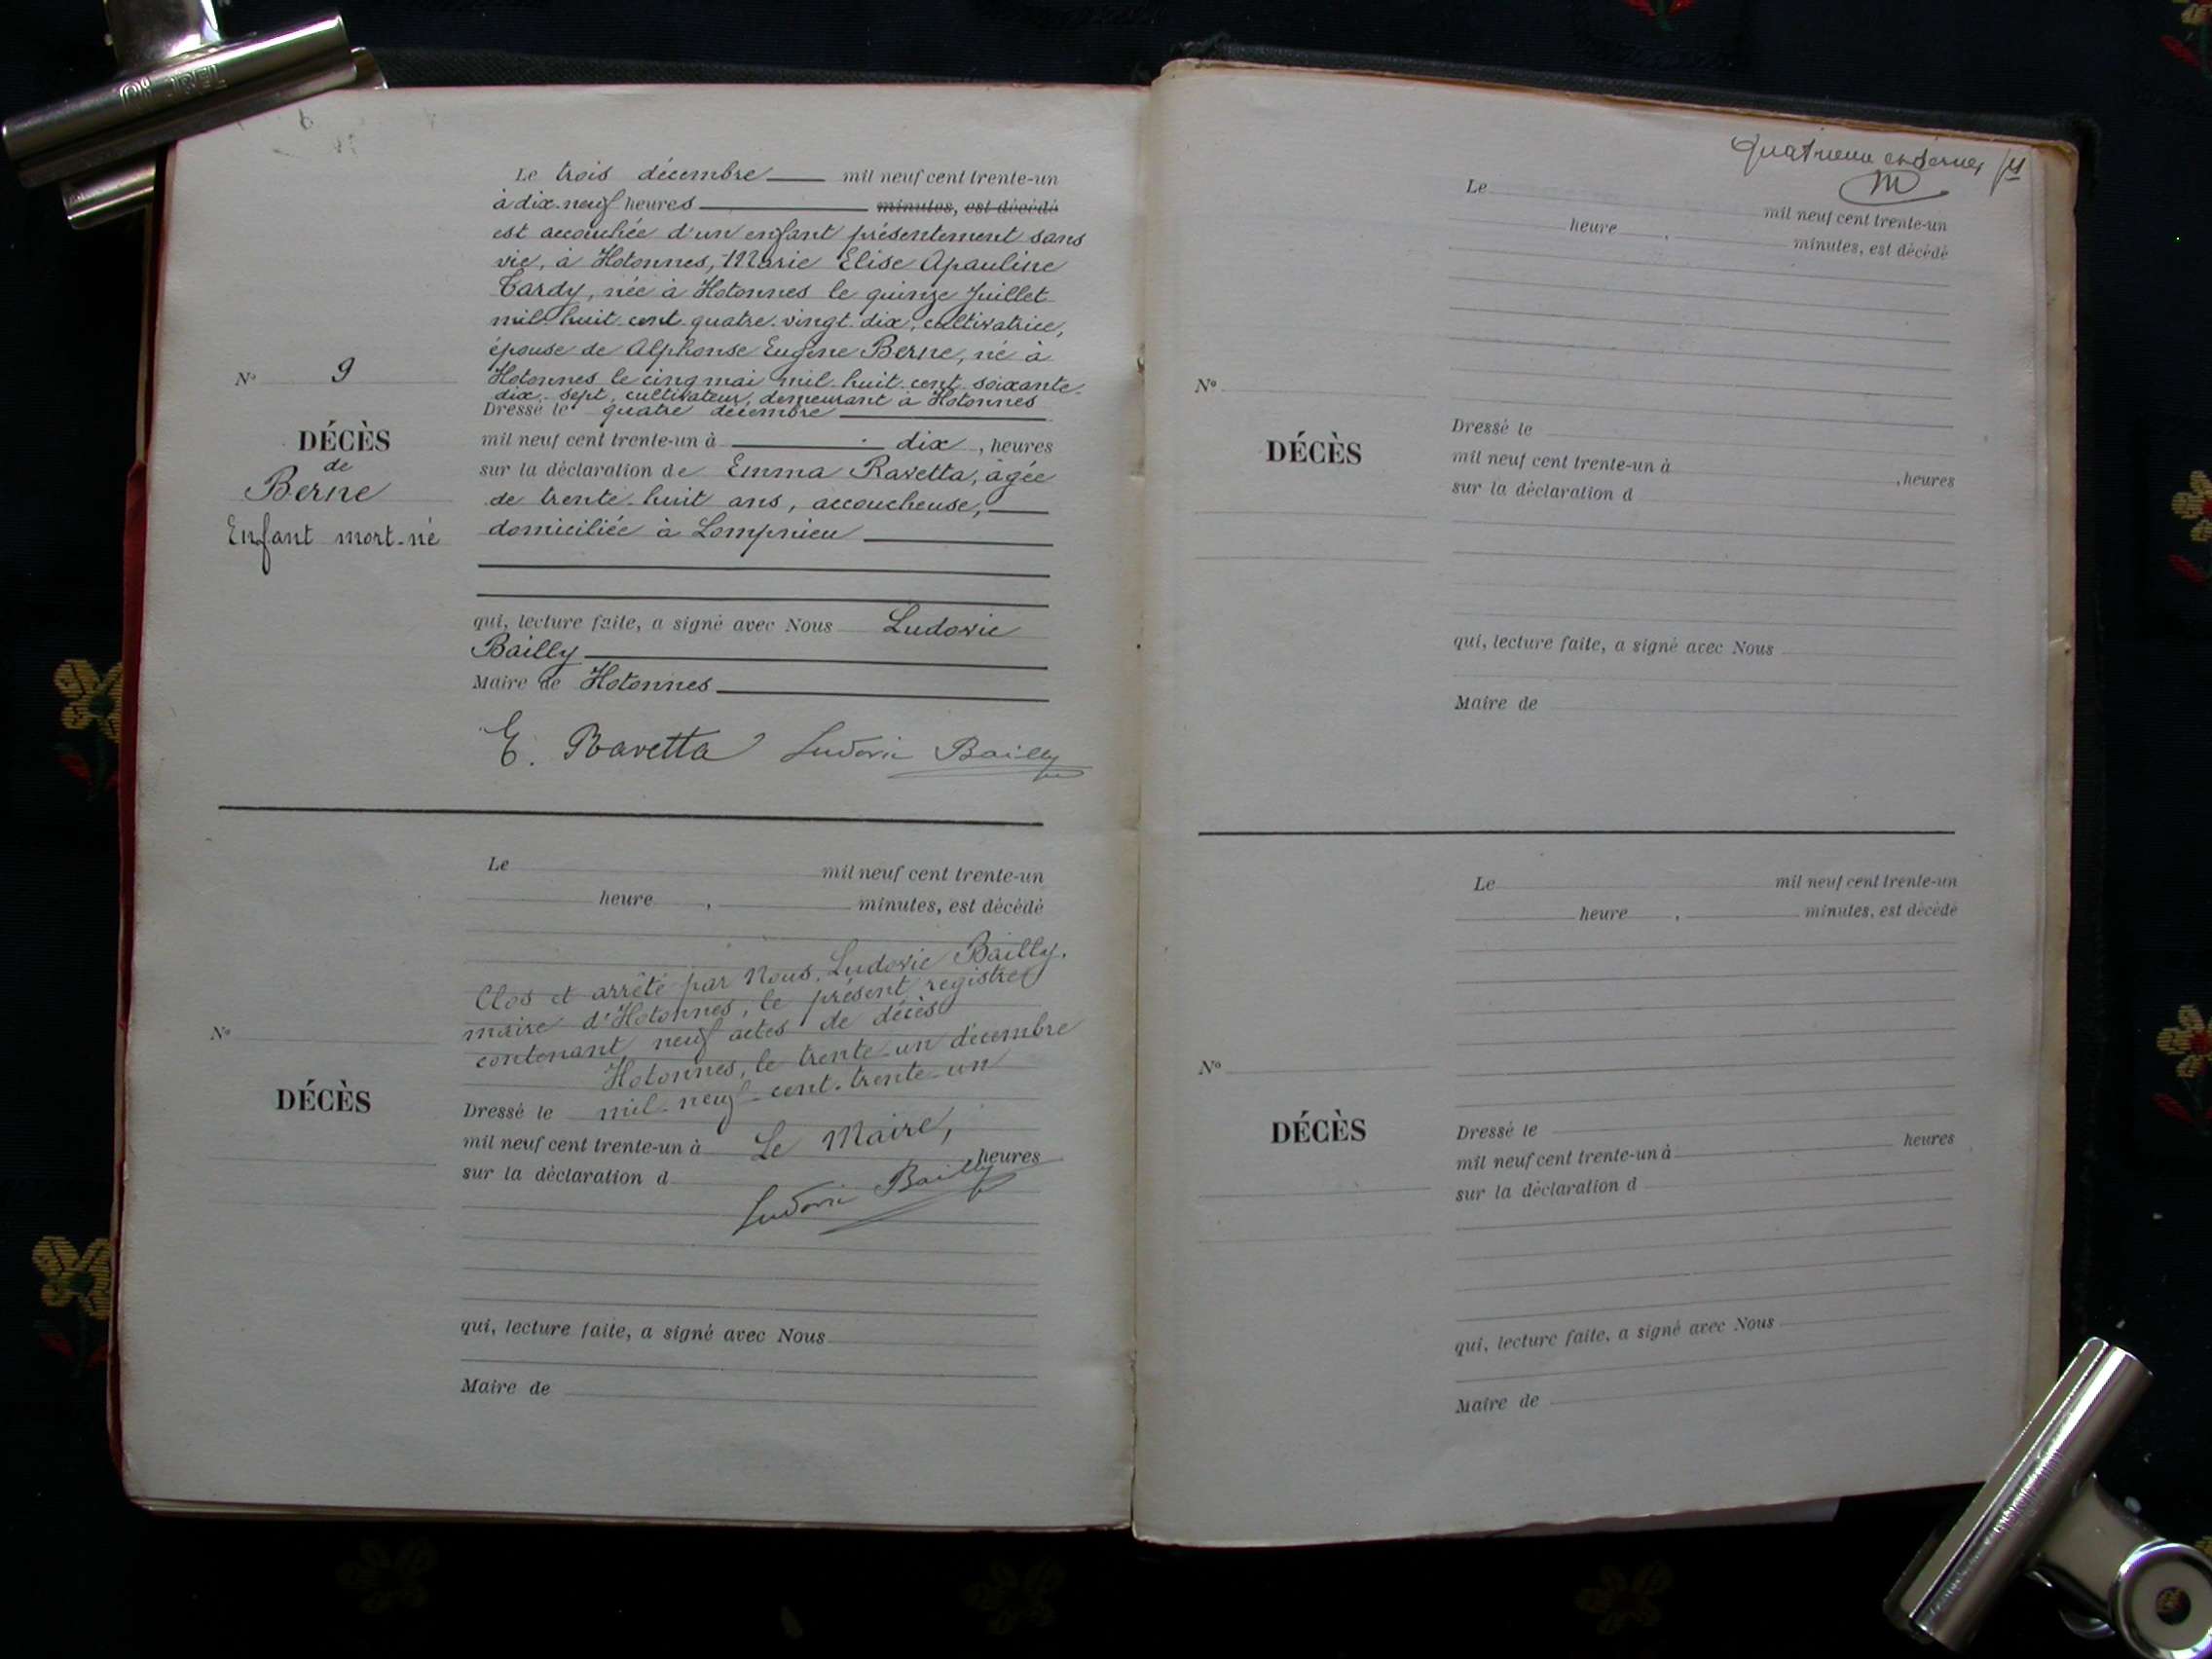 Le trois décembre mil neuf cent trente-un
à dix-neuf heures minutes, est décédé
est accouchée d'un enfant présentement sans
vie, à Hotonnes, Marie Elise Apauline
Tardy, née à Hotonnes le quinze Juillet
mil huit cent quatre-vingt-dix, cultivatrice,
épouse de Alphonse Eugène Berne, né à
Hotonnes le cinq mai mil huit cent soixante-
dix-sept, cultivateur, demeurant à Hotonnes
Dressé le quatre décembre
mil neuf cent trente-un à dix, heures
sur la déclaration de Emma Ravetta, âgée
de trente-huit ans, accoucheuse,
domiciliée à Lompnieu
qui, lecture faite, a signé avec Nous Ludovic
Bailly
Maire de Hotonnes
E. Ravetta Ludovic Bailly
N° 9
DÉCÈS
de
Berne
Enfant mort-né
Le mil neuf cent trente-un
heure , minutes, est décédé
Clos et arrêté par Nous, Ludovic Bailly,
maire d'Hotonnes, le présent registre
contenant neuf actes de décès
Hotonnes, le trente-un décembre
Dressé le mil-neuf-cent-trente-un
mil neuf cent trente-un à Le Maire,
, heures
sur la déclaration d
Ludovic Bailly
qui, lecture faite, a signé avec Nous
Maire de
N°
DÉCÈS
Quatrième et dernier
Le mil neuf cent trente-un
heure , minutes, est décédé
N°
DÉCÈS
Dressé le
mil neuf cent trente-un à , heures
sur la déclaration d
qui, lecture faite, a signé avec Nous
Maire de
Le mil neuf cent trente-un
heure , minutes, est décédé
N°
DÉCÈS
Dressé le
mil neuf cent trente-un à heures
sur la déclaration d
qui, lecture faite, a signé avec Nous
Maire de